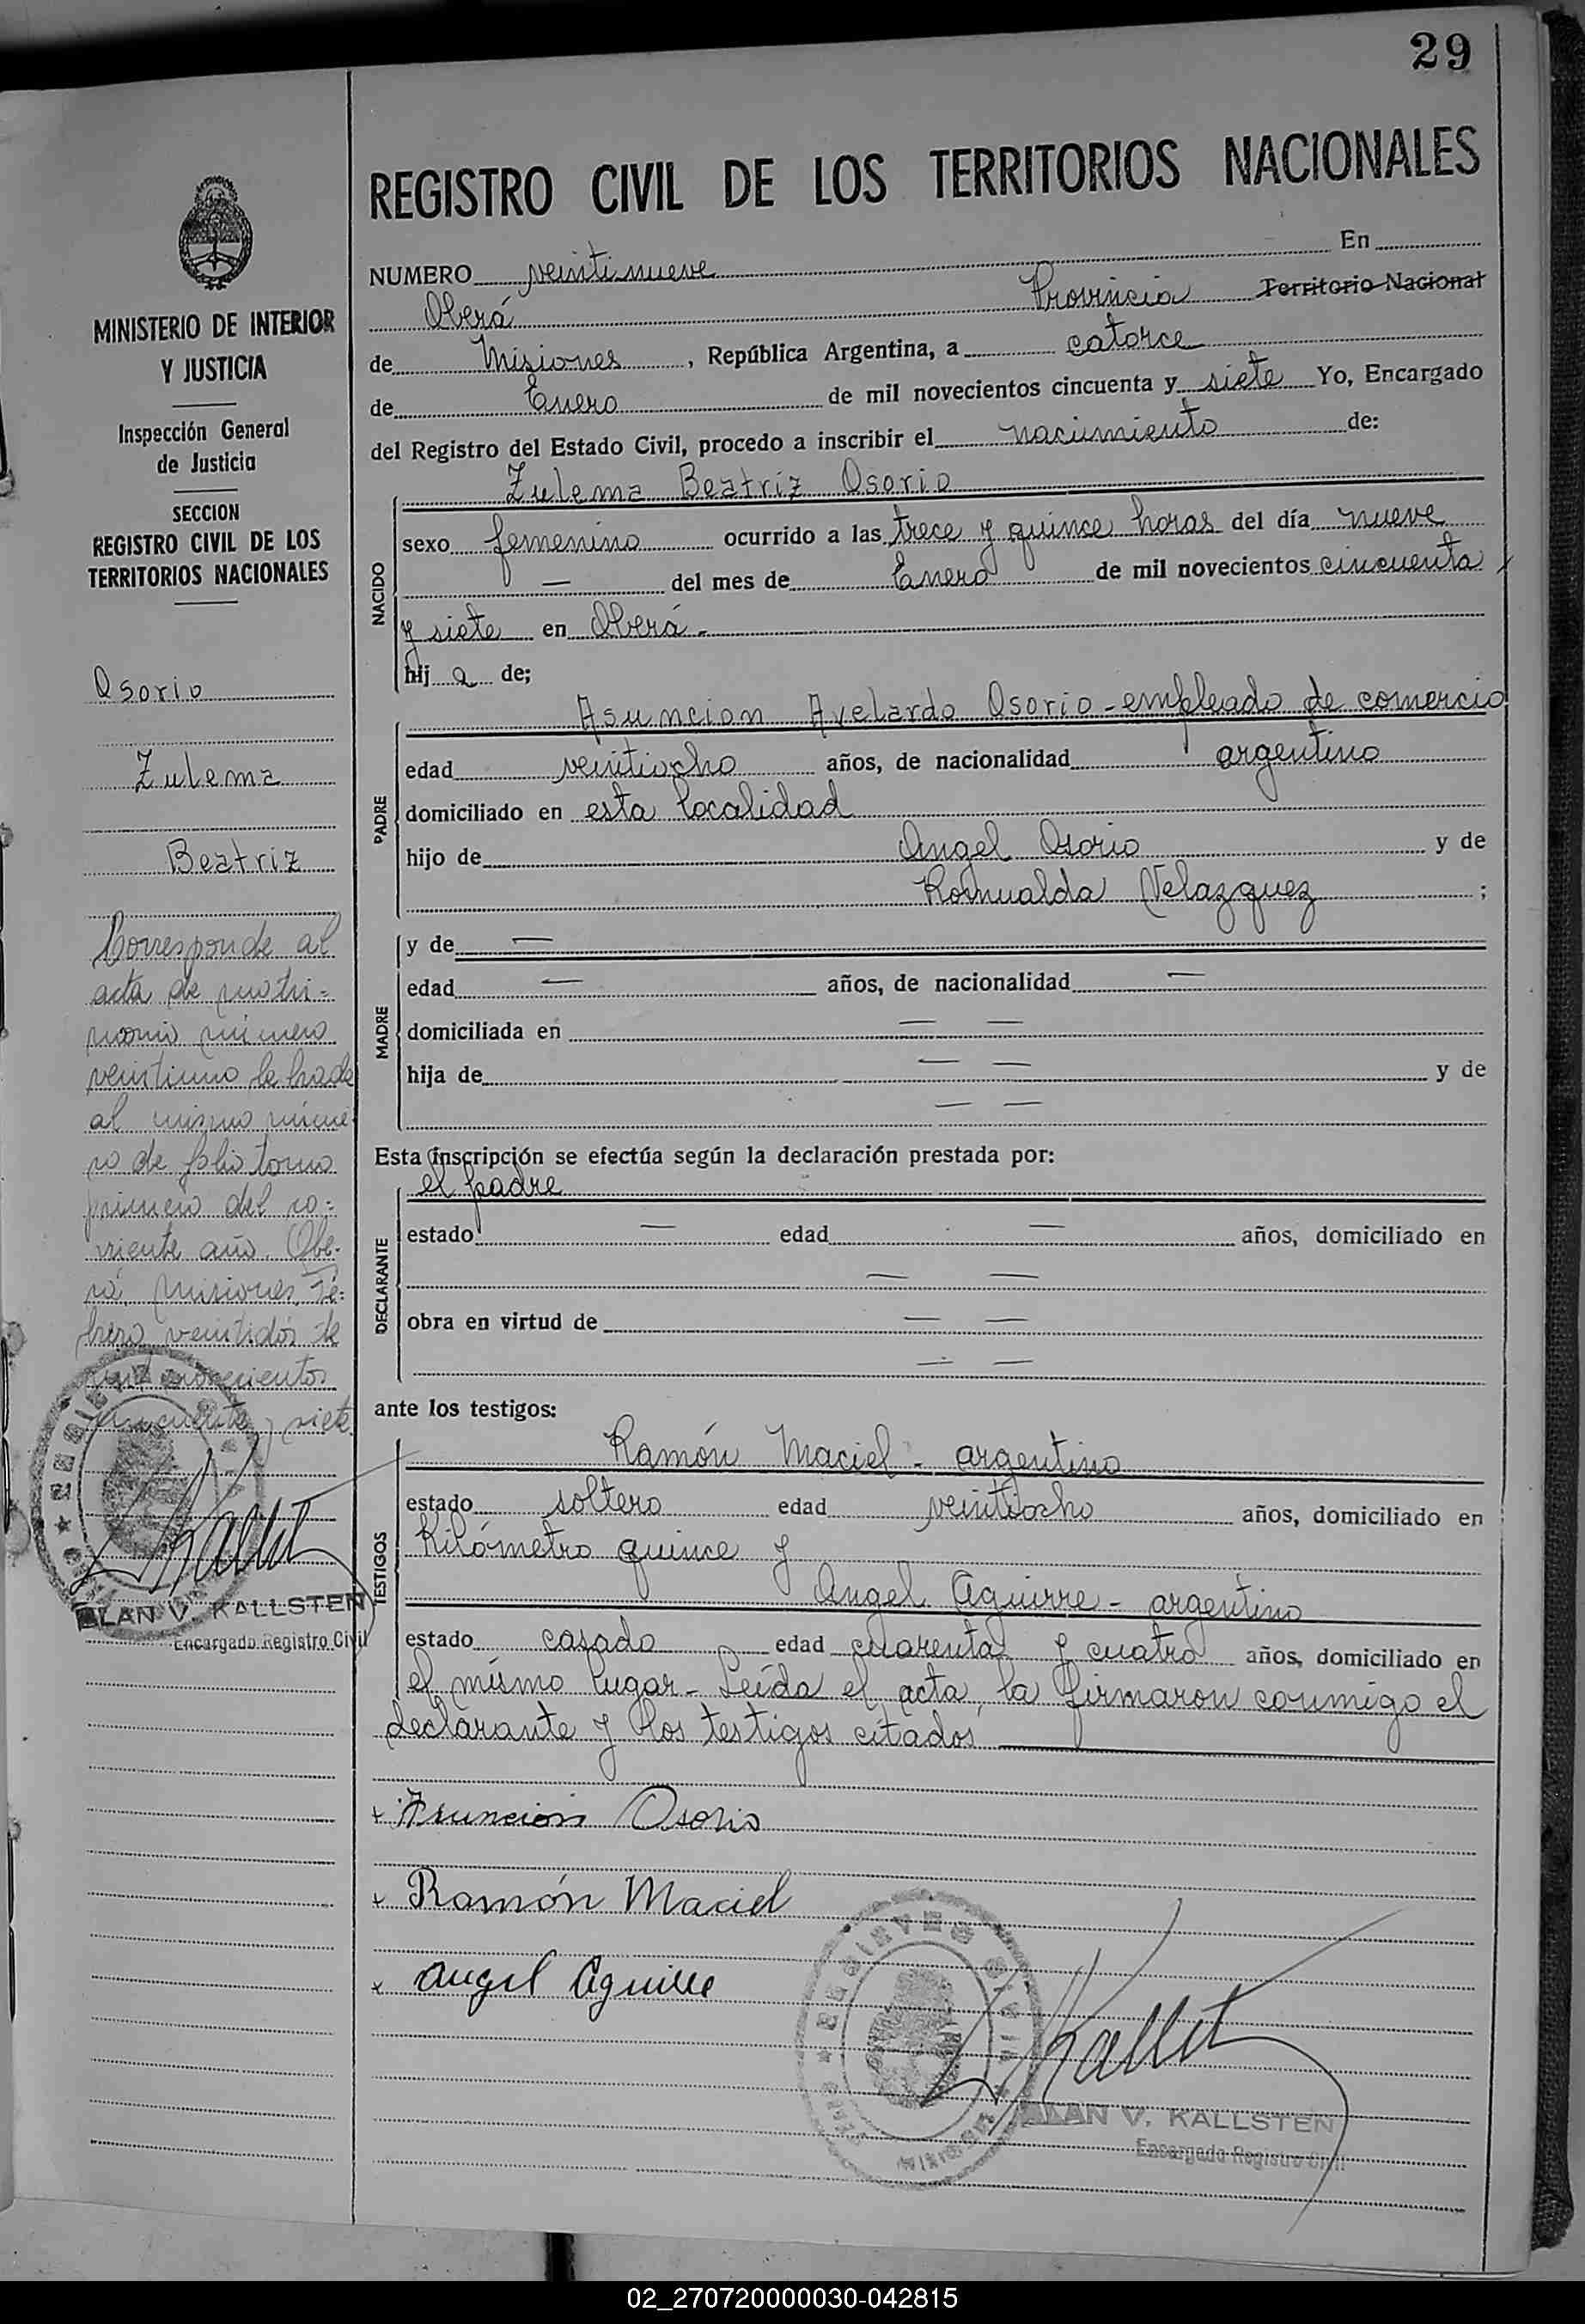 29
REGISTRO CIVIL DE LOS TERRITORIOS NACIONALES
MINISTERIO DE INTERIOR
Y JUSTICIA
Inspección General
de Justicia
SECCION
REGISTRO CIVIL DE LOS
TERRITORIOS NACIONALES
Osorio
Zulema
Beatriz
Corresponde al
acta de matri-
monio número
veintiuno labrada
al mismo núme-
ro de folio tomo
primero del co-
rriente año. Obe-
rá, Misiones, Fe-
brero veintidós de
mil novecientos
cincuenta y siete
ALAN V. KALLSTEN
Encargado Registro Civil
NUMERO veintinueve En
Oberá Provincia Territorio Nacional
de Misiones, República Argentina, a catorce
de Enero de mil novecientos cincuenta y siete Yo, Encargado
del Registro del Estado Civil, procedo a inscribir el nacimiento de:
NACIDO
Zulema Beatriz Osorio
sexo femenino ocurrido a las trece y quince horas del día nueve
— del mes de Enero de mil novecientos cincuenta
y siete en Oberá.-
hij a de;
PADRE
Asuncion Avelardo Osorio - empleado de comercio
edad veintiocho años, de nacionalidad argentino
domiciliado en esta localidad
hijo de Angel Osorio y de
Romualda Velazquez ;
MADRE
y de —
edad — años, de nacionalidad —
domiciliada en — —
hija de — — y de
— —
Esta inscripción se efectúa según la declaración prestada por:
DECLARANTE
el padre
estado — edad — años, domiciliado en
— —
obra en virtud de — —
— —
ante los testigos:
TESTIGOS
Ramón Maciel - argentino
estado soltero edad veintiocho años, domiciliado en
Kilómetro quince y
Angel Aguirre - argentino
estado casado edad cuarenta y cuatro años, domiciliado en
el mismo lugar - Leída el acta, la firmaron conmigo el
declarante y los testigos citados
x Asunción Osorio
x Ramón Maciel
x Angel Aguirre
ALAN V. KALLSTEN
Encargado Registro Civil
02_270720000030-042815